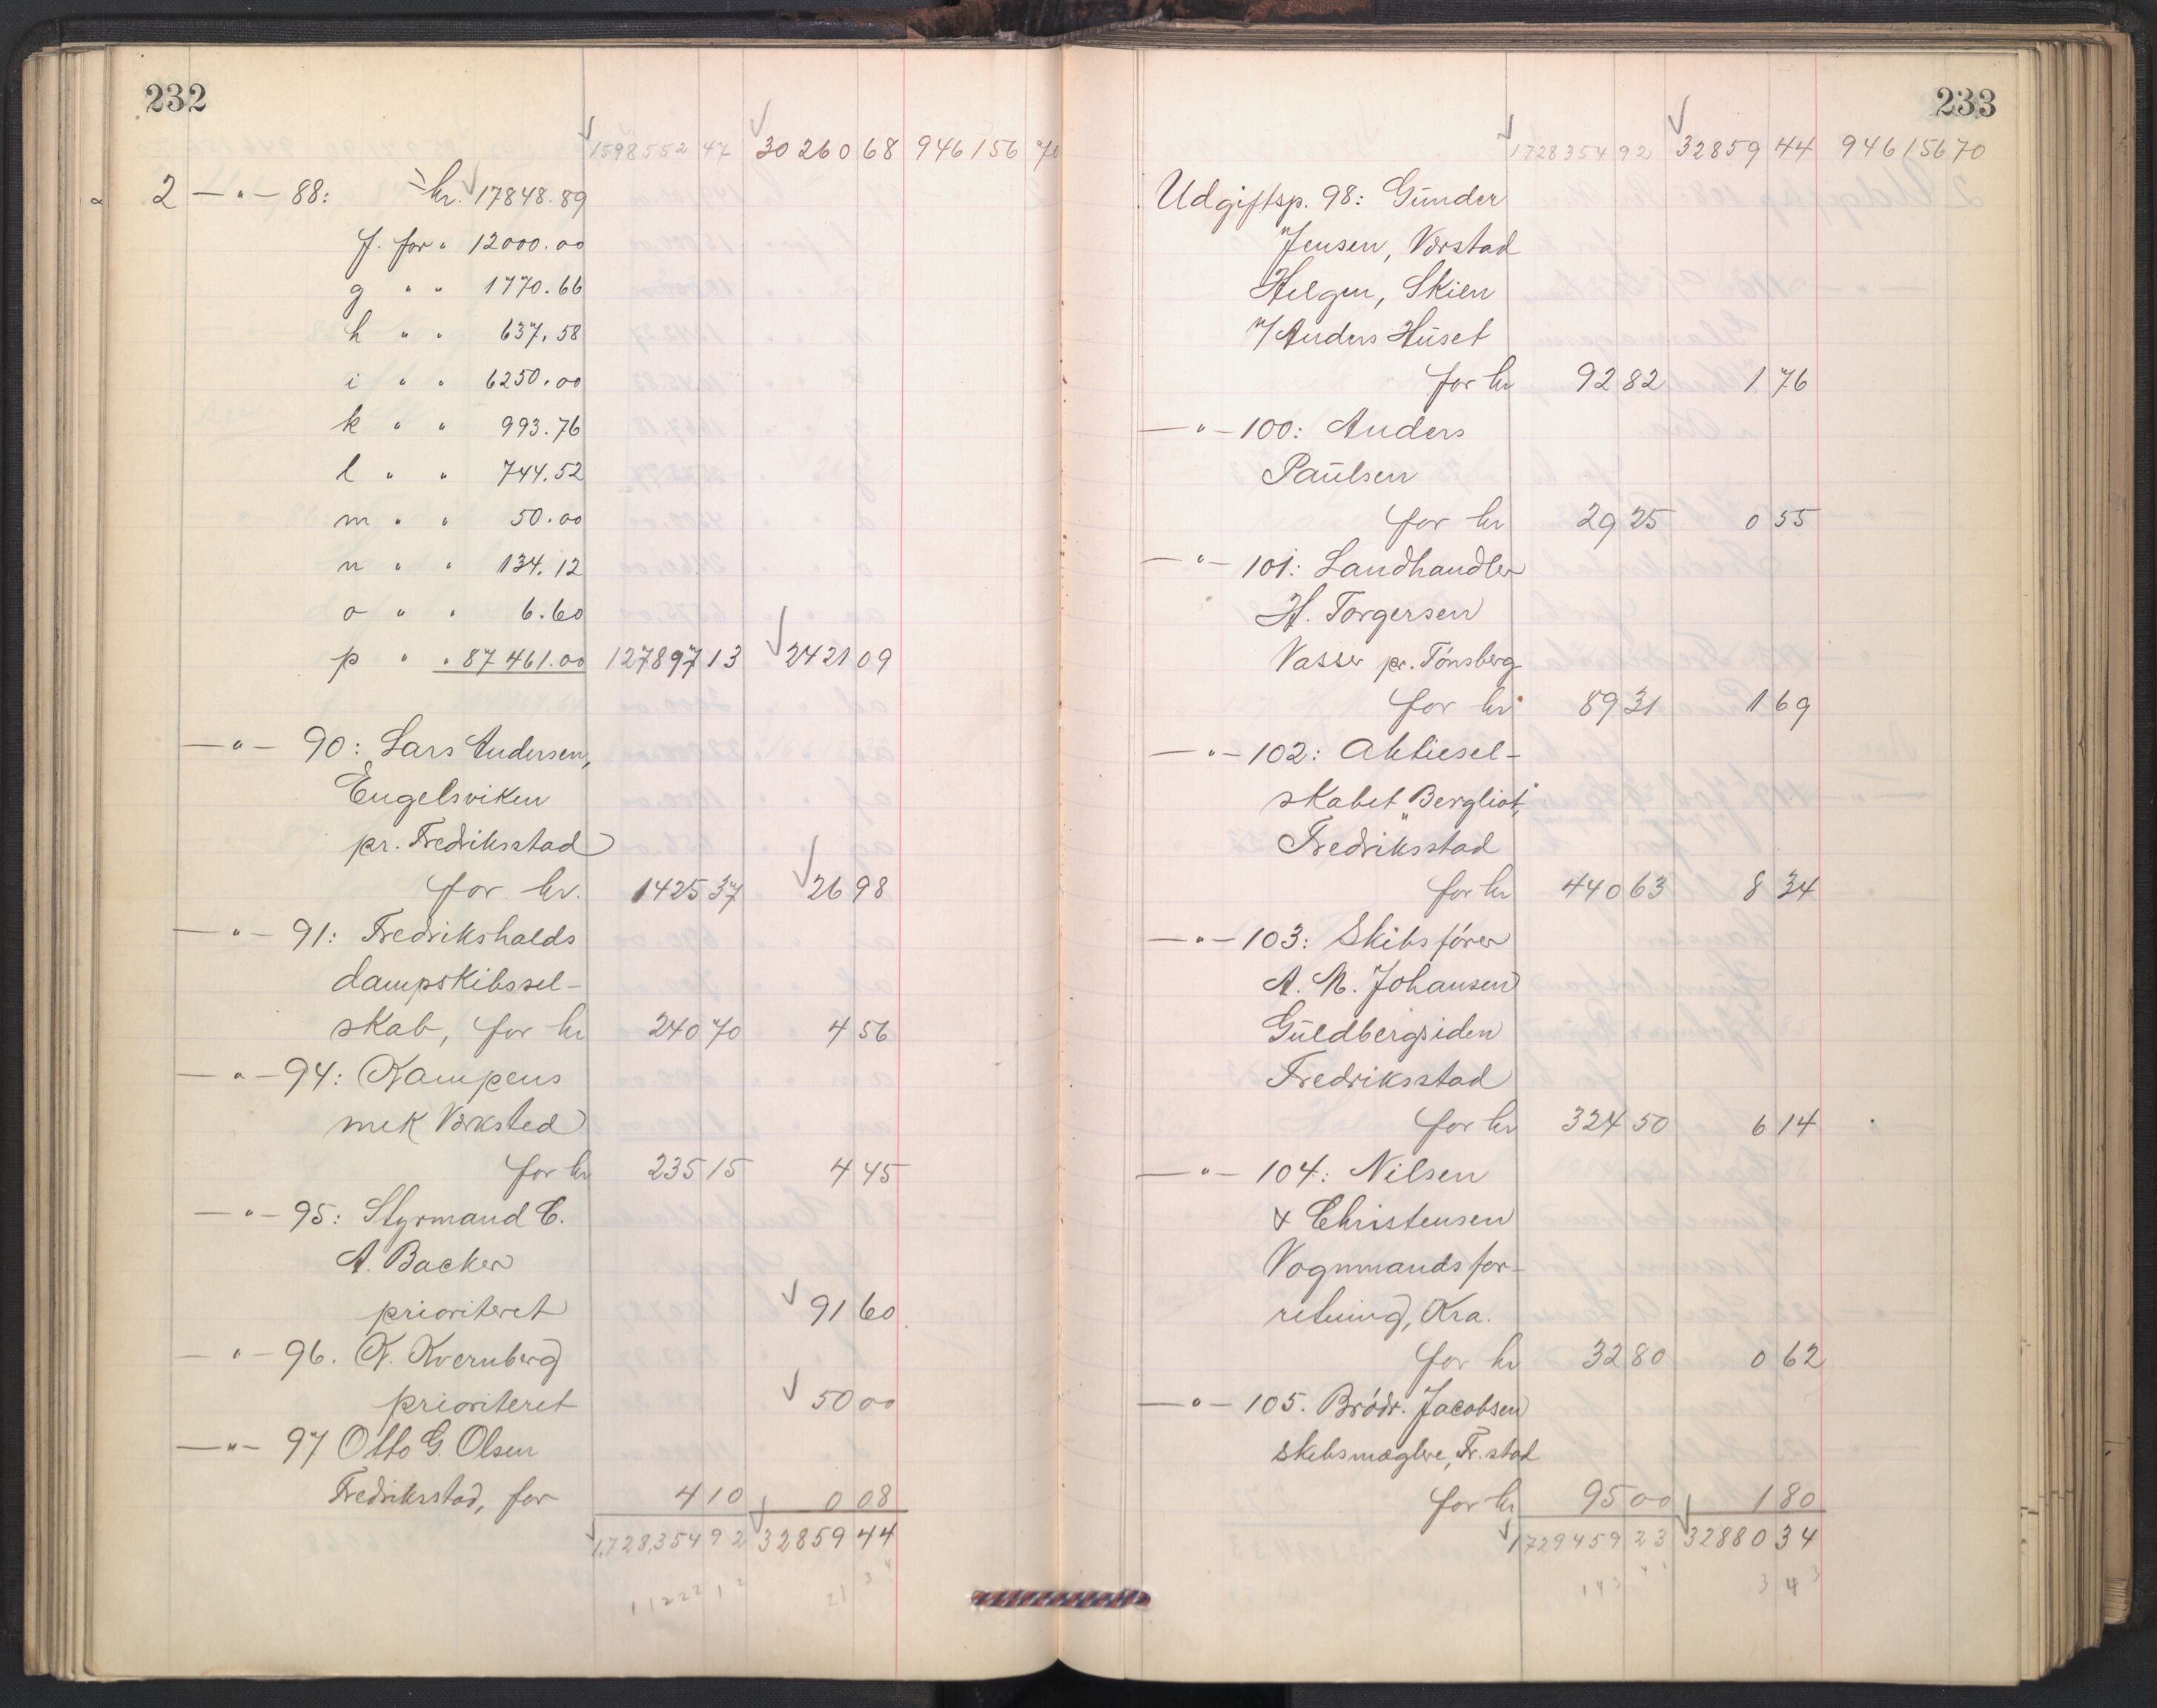 232
1598552 47 30260 68 946156 70
2 — " — 88: kr. 17848.89
f. for " 12000.00
g " " 1770.66
h " " 637.58
i " " 6250.00
k " " 993.76
l " " 744.52
m " " 50.00
n " " 134.12
o " " 6.60
p " " 87461.00 127897 13 2421 09
— " — 90: Lars Andersen,
Engelsviken
pr. Fredriksstad
for kr. 1425 37 26 98
— " — 91: Fredrikshalds
dampskibssel-
skab, for kr 240 70 4 56
— " — 94: Kampens
mek Værksted
for kr 235 15 4 45
— " — 95: Styrmand C.
A. Backer
prioriteret 91 60
— " — 96. K. Kvernberg
prioriteret 50 00
— " — 97 Otto G. Olsen
Fredriksstad, for 4 10 0 08
1,728,354 92 32859 44
233
1728354 92 32859 44 946156 70
Udgiftsp. 98: Gunder
Jensen, Værstad
Helgen, Skien
v/ Anders Huset
for kr 92 82 1 76
— " — 100: Anders
Paulsen
for kr 29 25 0 55
— " — 101: Landhandler
H. Torgersen
Vasser pr. Tønsberg
for kr 89 31 1 69
— " — 102: Aktiesel-
skabet "Bergliot",
Fredriksstad
for kr 440 63 8 34
— " — 103: Skibsfører
A. M. Johansen
Guldbergsiden
Fredriksstad
for kr 324 50 6 14
— " — 104: Nilsen
& Christensen
Vognmandsfor-
retning, Kra.
for kr 32 80 0 62
— " — 105. Brødr. Jacobsen
Skibsmæglere, Fr.stad
for kr 95 00 1 80
1729459 23 32880 34